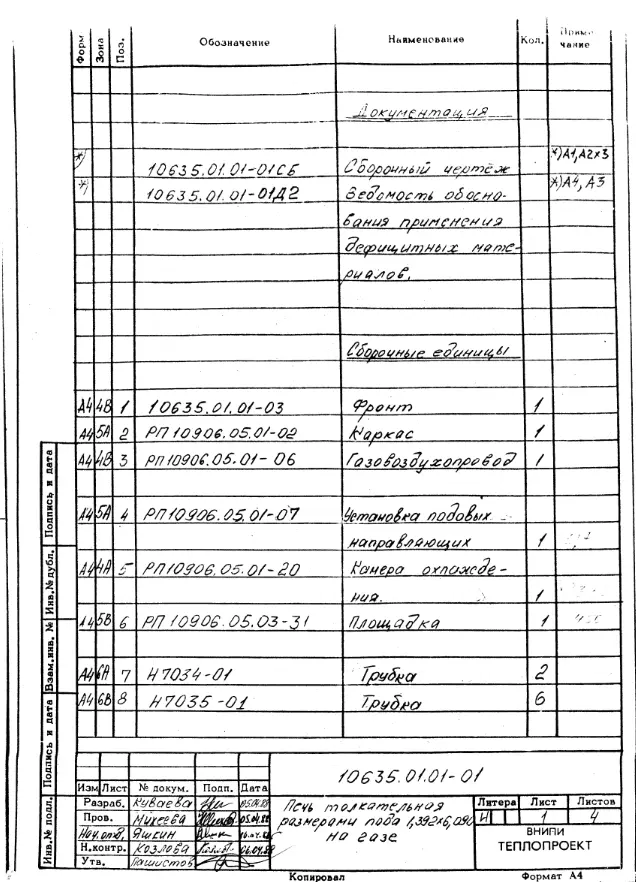 Форм Зона Поз. Обозначение Наименование Кол. Приме-
чание
Документация
*) 10635.01.01-01СБ Сборочный чертёж *)А1,А2х3
*) 10635.01.01-01Д2 Ведомость обосно- *)А4,А3
вания применения
дефицитных мате-
риалов.
Сборочные единицы
А4 4В 1 10635.01.01-03 Фронт 1
А4 5А 2 РП10906.05.01-02 Каркас 1
А4 4В 3 РП10906.05.01-06 Газовоздухопровод 1
А4 5А 4 РП10906.05.01-07 Установка подовых
направляющих 1
А4 4А 5 РП10906.05.01-20 Камера охлажде-
ния. 1
А4 5В 6 РП10906.05.03-31 Площадка 1
А4 6А 7 Н7034-01 Трубка 2
А4 6В 8 Н7035-01 Трубка 6
Инв.№ подл. Подпись и дата Взам.инв. № Инв.№дубл. Подпись и дата
10635.01.01-01
Изм Лист № докум. Подп. Дата
Разраб. Куваева
Пров. Михеева 05.04.88
Нач.отд. Яшкин
Н.контр. Козлова 06.04.88
Утв.
Печь толкательная
размерами пода 1,392х6,090
на газе
Литера Лист Листов
И 1 4
ВНИПИ
ТЕПЛОПРОЕКТ
Копировал Формат А4